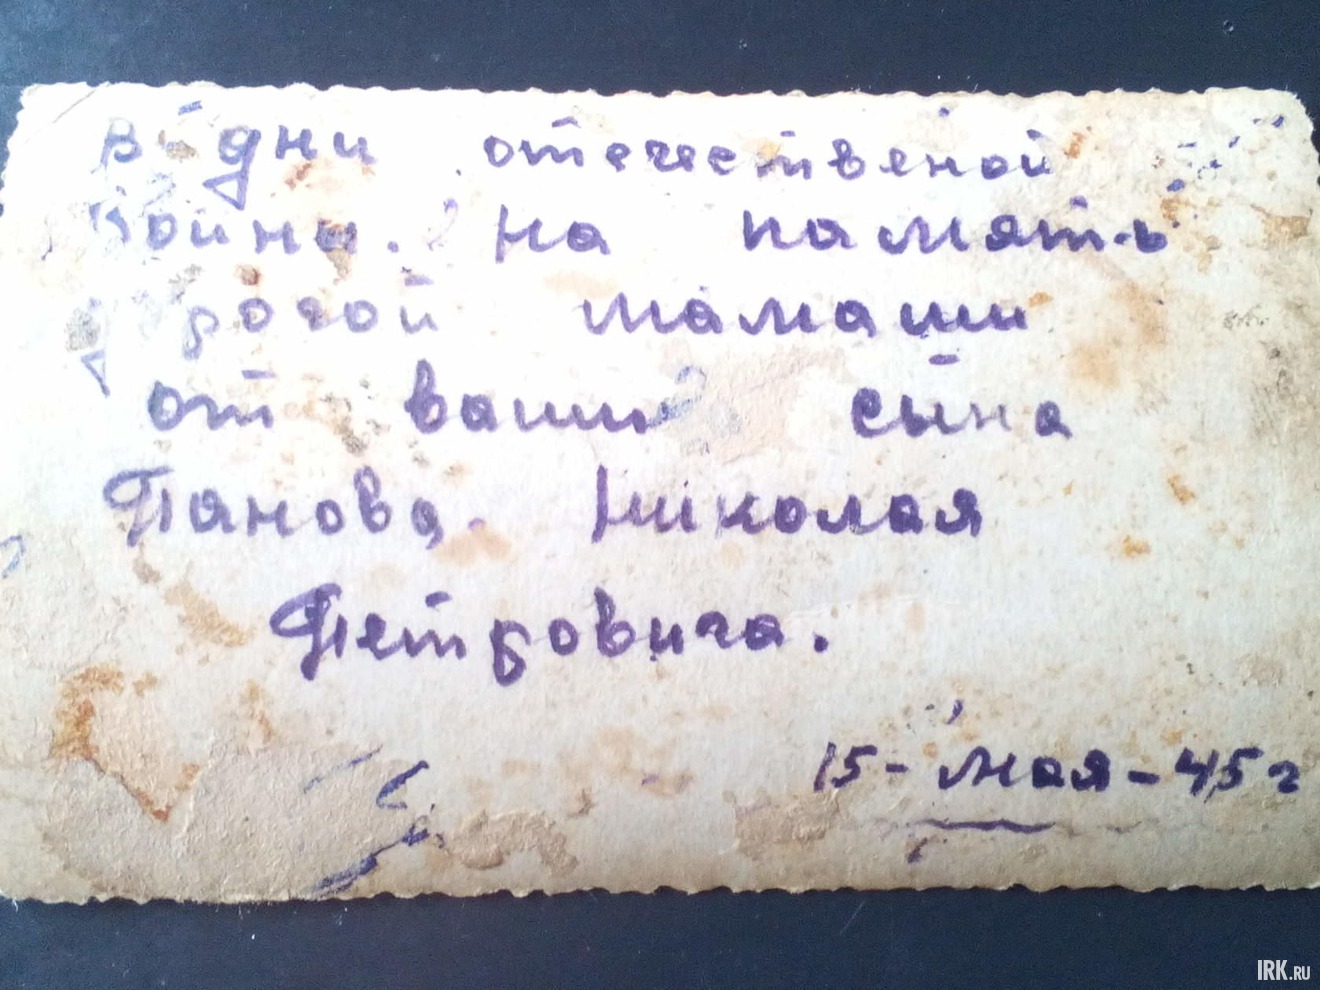 В дни отечественой
войны. на память
дорогой мамаши
от ваши сына
Панова. Николая
Петровича.
15 - мая - 45 г
IRK.RU